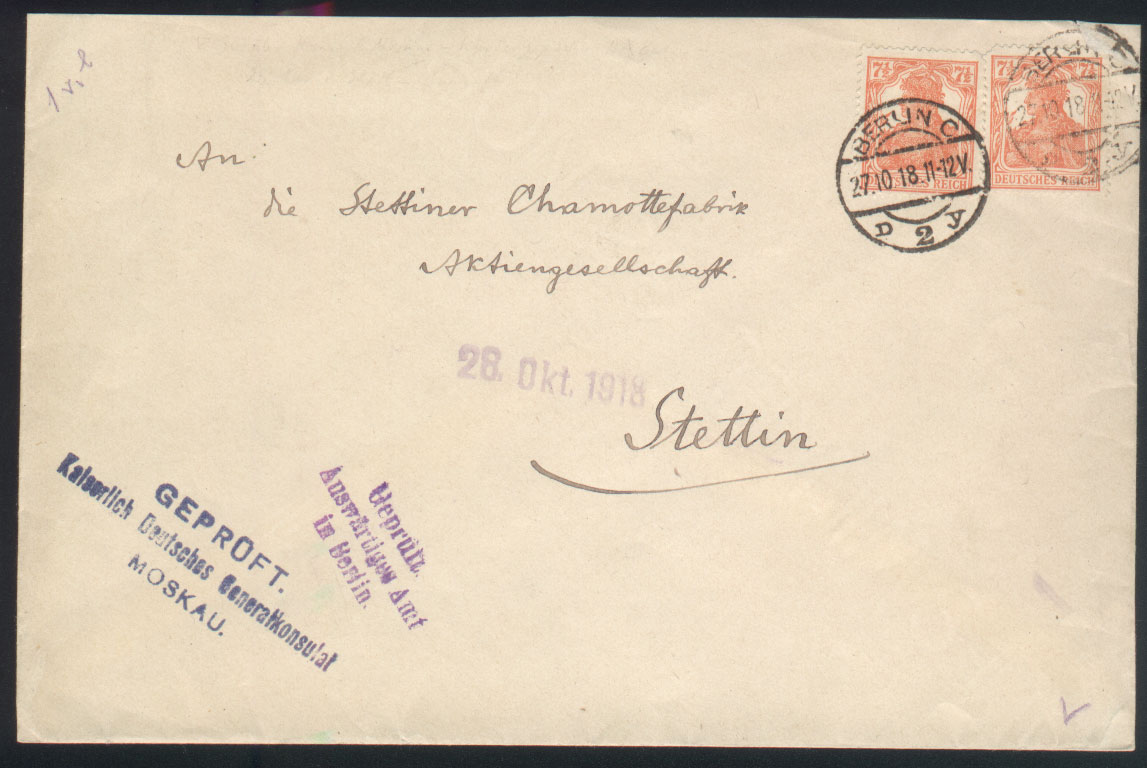 1 v. l
7½ 7½ 7½ 7½
DEUTSCHES REICH DEUTSCHES REICH
BERLIN C
27.10.18.11-12V.
D 2 y
BERLIN C
27.10.18.11-12V.
An:
die Stettiner Chamottefabrik
Aktiengesellschaft.
28. Okt. 1918
Stettin
GEPRÜFT.
Kaiserlich Deutsches Generalkonsulat
MOSKAU.
Geprüft.
Auswärtiges Amt
in Berlin.